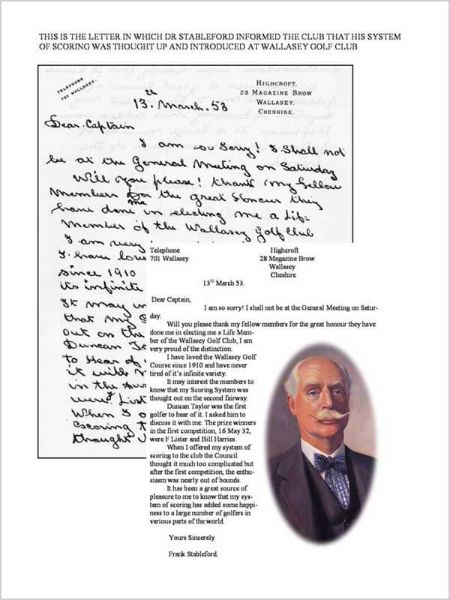 THIS IS THE LETTER IN WHICH DR STABLEFORD INFORMED THE CLUB THAT HIS SYSTEM
OF SCORING WAS THOUGHT UP AND INTRODUCED AT WALLASEY GOLF CLUB
TELEPHONE
701 WALLASEY.
HIGHCROFT,
28 MAGAZINE BROW
WALLASEY.
CHESHIRE.
13.th March. 53
Dear Captain
I am so sorry! I shall not
be at the General Meeting on Saturday
Will you please! thank my fellow
Members for the great Honour they
have done me in electing me a Life
Member of the Wallasey Golf Club
I am very
I have love
since 1910
its infinite
It may in
that my S
out on the
Duncan Ta
to Hear of
it with
in the
were List
When I o
scoring t
thought
Telephone
701 Wallasey
Highcroft
28 Magazine Brow
Wallasey
Cheshire
13th March 53.
Dear Captain,
I am so sorry! I shall not be at the General Meeting on Satur-
day.
Will you please thank my fellow members for the great honour they have
done me in electing me a Life Mem-
ber of the Wallasey Golf Club, I am
very proud of the distinction.
I have loved the Wallasey Golf
Course since 1910 and have never
tired of it's infinite variety.
It may interest the members to
know that my Scoring System was
thought out on the second fairway.
Duncan Taylor was the first
golfer to hear of it. I asked him to
discuss it with me. The prize winners
in the first competition, 16 May 32,
were F Lister and Bill Harries.
When I offered my system of
scoring to the club the Council
thought it much too complicated but
after the first competition, the enthu-
siasm was nearly out of bounds.
It has been a great source of
pleasure to me to know that my sys-
tem of scoring has added some happi-
ness to a large number of golfers in
various parts of the world.
Yours Sincerely
Frank Stableford.